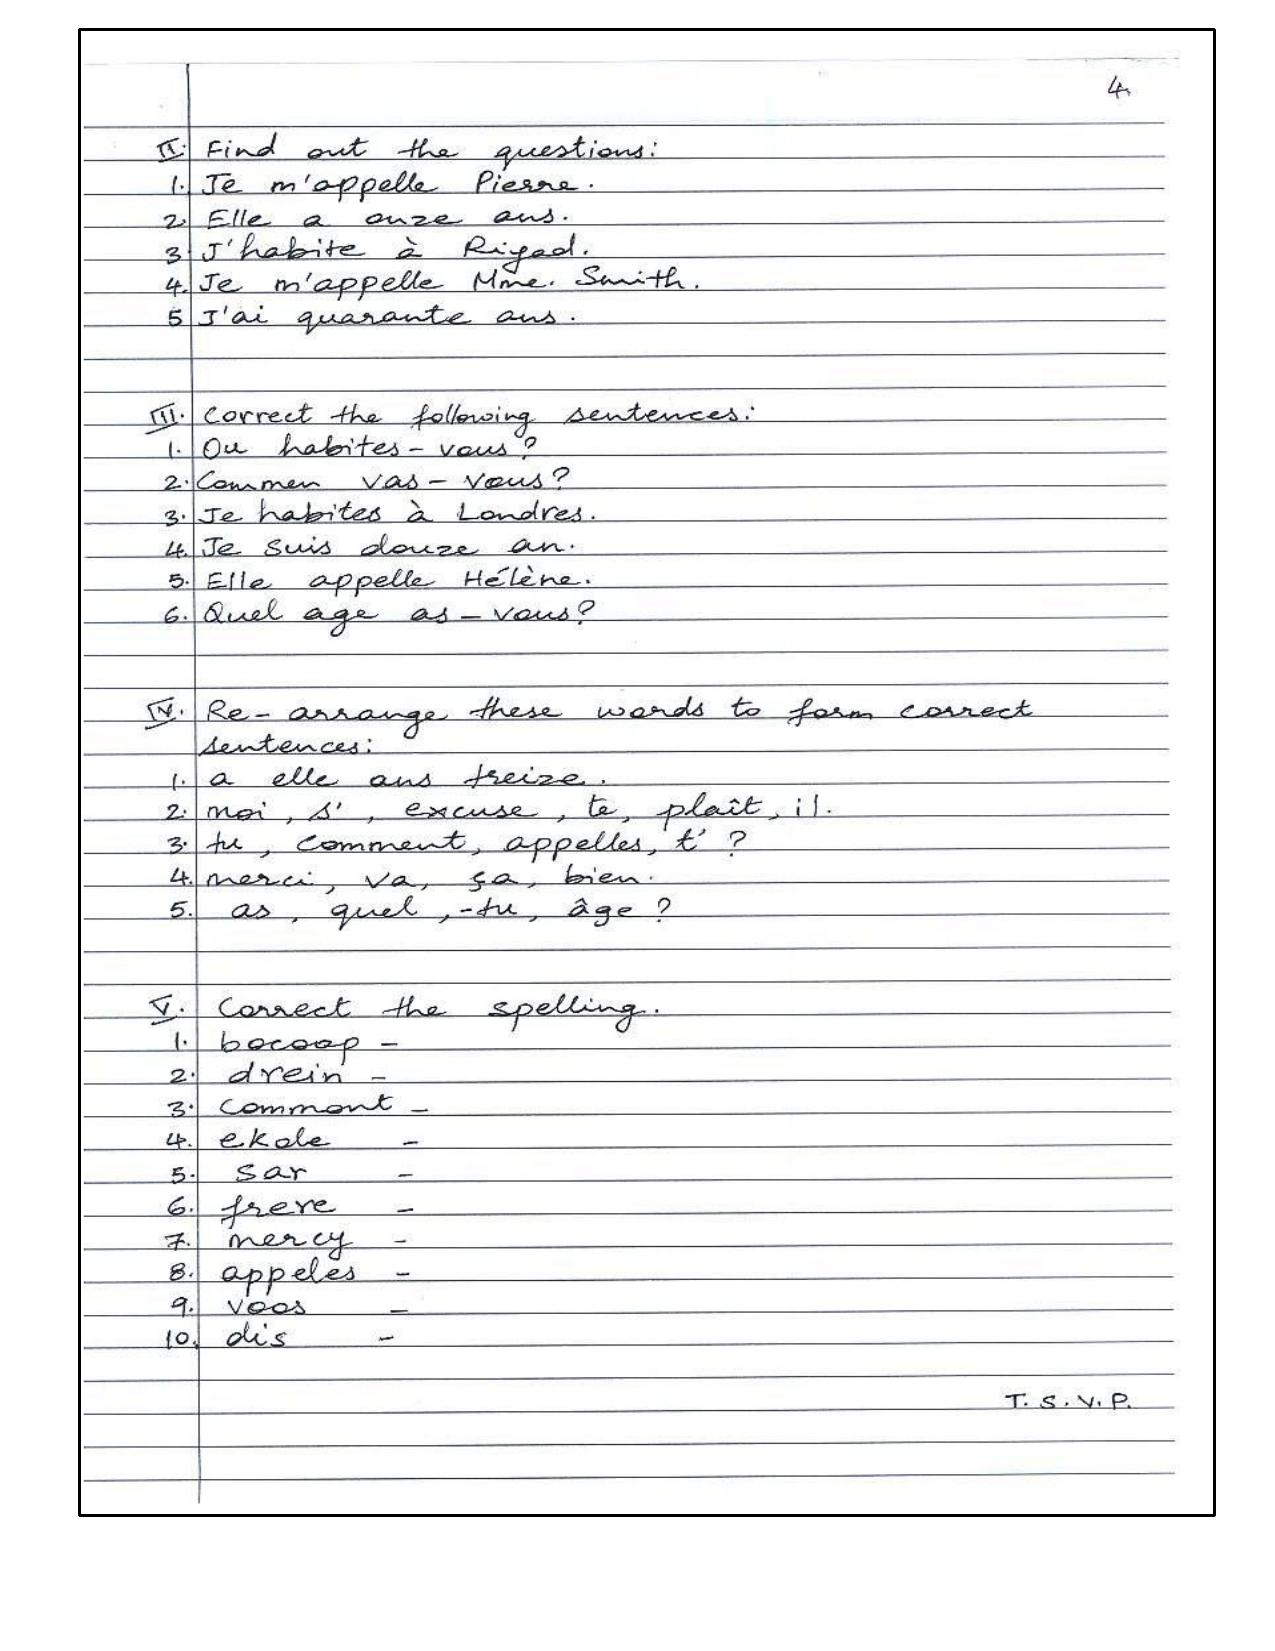 4.
II. Find out the questions:
1. Je m'appelle Pierre.
2. Elle a onze ans.
3 J'habite à Riyad.
4. Je m'appelle Mme. Smith.
5 J'ai quarante ans.
III. Correct the following sentences:
1. Ou habites-vous?
2. Commen vas-vous?
3. Je habites à Londres.
4. Je suis douze an.
5. Elle appelle Hélène.
6. Quel age as-vous?
IV. Re-arrange these words to form correct
sentences:
1. a elle ans treize.
2. moi, s', excuse, te, plaît, il.
3. tu, comment, appelles, t'?
4. merci, va, ça, bien.
5. as, quel, -tu, âge?
V. Correct the spelling.
1. bocoop -
2. drein -
3. commont -
4. ekole -
5. sar -
6. frere -
7. mercy -
8. appeles -
9. voos -
10. dis -
T. S. V. P.